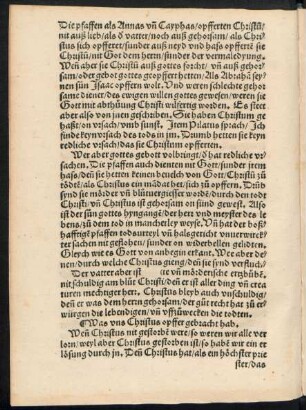 Die pfaffen als Annas vñ Cayphas/opfferten Christũ/
nit auß lieb/als ð vatter/noch auß gehorsam/als Chri
stus sich opfferet/sunder auß neyd vnd haß opfferte sie
Christũ/nit Got dem herrn/sunder der vermaledyung.
Weñ aber sie Christũ auß gottes forcht/vñ auß gehor
sam/oder gebot gottes geopffert hetten/Als Abrahã sey
nen sun Isaac opffern wolt. Vnd weren schlechte gehor
same diener/des ewigen willen gottes gewesen/weren sie
Gott mit abthũung Christi wilfertig worden. Es steet
aber also von jnen geschriben. Sie haben Christum ge
haßt/on vrsach/vmb sunst. Item Pilatus sprach/Ich
finde keyn vrsach des tods in jm. Drumb hetten sie keyn
redliche vrsach/das sie Christum opfferten.
Wer aber gottes gebott volbringt/ð hat redliche vr
sachen. Die pfaffen auch dienten nit Gott/sunder jrem
haß/deñ sie hetten keinen beuelch von Gott/Christũ zů
tödtẽ/als Christus ein mãdat het/sich zů opffern. Deñ
synd sie mörder vñ blůtuergiesser wordẽ/durch den todt
Christi/vñ Christus ist gehorsam on sünd gewest. Also
ist der sün gottes hyngangẽ/der herr vnd meyster des le
bens/zů dem todt in mancherley weyse. Vñ hat der boß
hafftigẽ pfaffen todt
sachen nit geflohen/sunder on widerbellen geliden.
Gleych wie es Gott von anbegin erkant. Wee aber de
nen/durch welche Christus gieng/deñ sie synd verflůch
Der vatter aber ist vñ mörderische
nit schuldig am blůt Christi/deñ er ist aller ding vñ crea
turen mechtiger herr. Christus bleyb auch vnschuldig/
deñ er was dem herrn gehorsam/der gůt recht hat zů er
würgen die lebendigen/vñ vfferwecken die todten.
¶ Was vns Christus opffer gebracht hab.
Weñ Christus nit gestorbẽ were/so weren wir alle ver
lorn/weyl aber Christus gestorben ist/so habẽ wir ein er
lösung durch jn. Deñ Christus hat/als ein höchster prie
ster/das